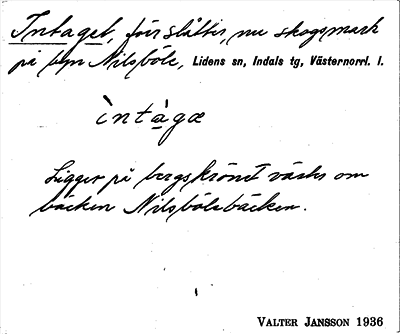 Intaget, förr slåtter, nu skogsmark
på byn Nilsböle, Lidens sn, Indals tg, Västernorrl. l.
ìntàgæ
Ligger på bergskrönet väster om
bäcken Nilsbölebäcken.
VALTER JANSSON 1936